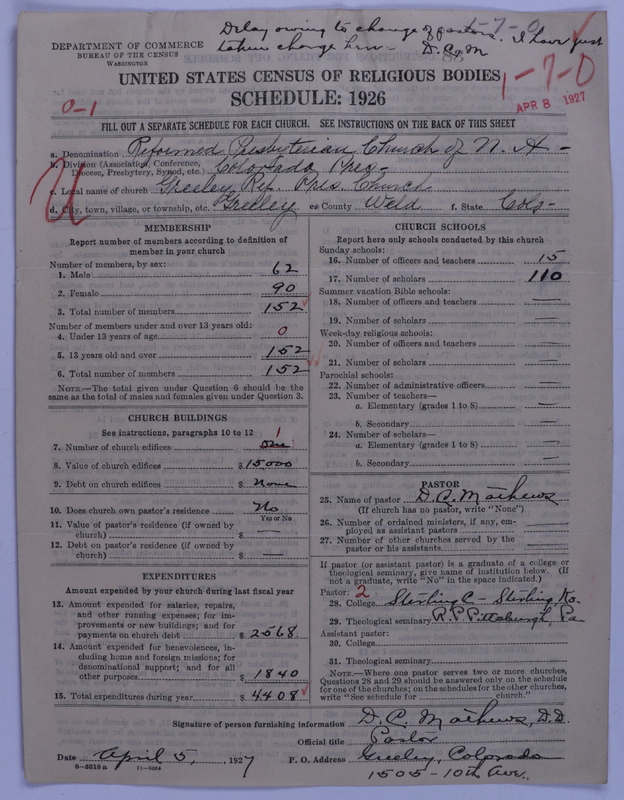 Delay owing to change of pastors. I have just
taken charge here - D.C.M
1-7-0
DEPARTMENT OF COMMERCE
BUREAU OF THE CENSUS
WASHINGTON
UNITED STATES CENSUS OF RELIGIOUS BODIES
SCHEDULE: 1926
1-7-0
APR 8 1927
0-1
FILL OUT A SEPARATE SCHEDULE FOR EACH CHURCH. SEE INSTRUCTIONS ON THE BACK OF THIS SHEET
a. Denomination Reformed Presbyterian Church of N. A -
b. Division (Association, Conference,
Diocese, Presbytery, Synod, etc.) Colorado Pres -
c. Local name of church Greeley Ref. Pres. Church
d. City, town, village, or township, etc. Greeley e. County Weld f. State Colo -
MEMBERSHIP
Report number of members according to definition of
member in your church
Number of members, by sex:
1. Male 62
2. Female 90
3. Total number of members 152
Number of members under and over 13 years old:
4. Under 13 years of age 0
5. 13 years old and over 152
6. Total number of members 152
NOTE.—The total given under Question 6 should be the
same as the total of males and females given under Question 3.
CHURCH BUILDINGS
See instructions, paragraphs 10 to 12
7. Number of church edifices one 1
8. Value of church edifices $15000
9. Debt on church edifices $ None
10. Does church own pastor's residence No
Yes or No
11. Value of pastor's residence (if owned by
church) $ —
12. Debt on pastor's residence (if owned by
church) $ —
EXPENDITURES
Amount expended by your church during last fiscal year
13. Amount expended for salaries, repairs,
and other running expenses; for im-
provements or new buildings; and for
payments on church debt $2568
14. Amount expended for benevolences, in-
cluding home and foreign missions; for
denominational support; and for all
other purposes $1840
15. Total expenditures during year $4408
CHURCH SCHOOLS
Report here only schools conducted by this church
Sunday schools:
16. Number of officers and teachers 15
17. Number of scholars 110
Summer vacation Bible schools:
18. Number of officers and teachers —
19. Number of scholars —
Week-day religious schools:
20. Number of officers and teachers —
21. Number of scholars —
Parochial schools:
22. Number of administrative officers —
23. Number of teachers—
a. Elementary (grades 1 to 8) —
b. Secondary —
24. Number of scholars—
a. Elementary (grades 1 to 8) —
b. Secondary —
PASTOR
25. Name of pastor D. C. Mathews
(If church has no pastor, write "None")
26. Number of ordained ministers, if any, em-
ployed as assistant pastors
27. Number of other churches served by the
pastor or his assistants
If pastor (or assistant pastor) is a graduate of a college or
theological seminary, give name of institution below. (If
not a graduate, write "No" in the space indicated.)
Pastor: 2
28. College Sterling C - Sterling Ks.
29. Theological seminary R.P. Pittsburgh, Pa
Assistant pastor:
30. College
31. Theological seminary
NOTE.—Where one pastor serves two or more churches,
Questions 28 and 29 should be answered only on the schedule
for one of the churches; on the schedules for the other churches,
write "See schedule for church."
Signature of person furnishing information D. C. Mathews, D.D.
Official title Pastor
Date April 5, 1927 P. O. Address Greeley, Colorado
8-5518a 11-9984 1505 - 10th Ave.